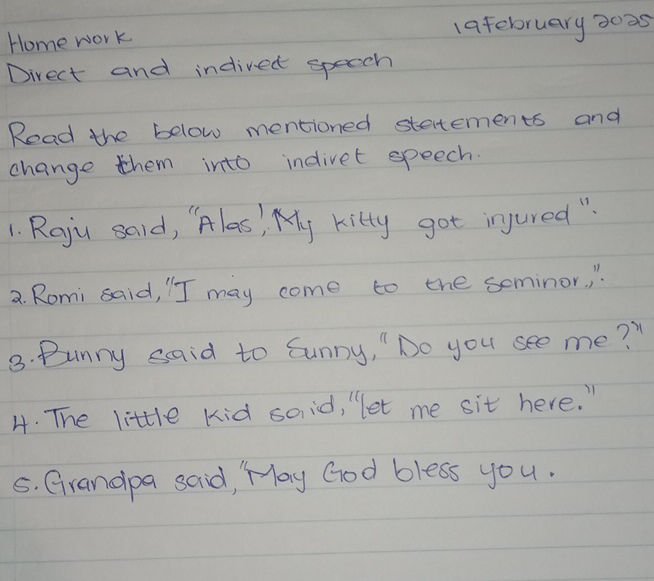 Home work
19 February 2025
Direct and indirect speech
Read the below mentioned statements and
change them into indiret speech.
1. Raju said, "Alas! My kitty got injured".
2. Romi said, "I may come to the seminor,".
3. Bunny said to Sunny, "Do you see me?"
4. The little kid said, "let me sit here."
5. Grandpa said, "May God bless you.